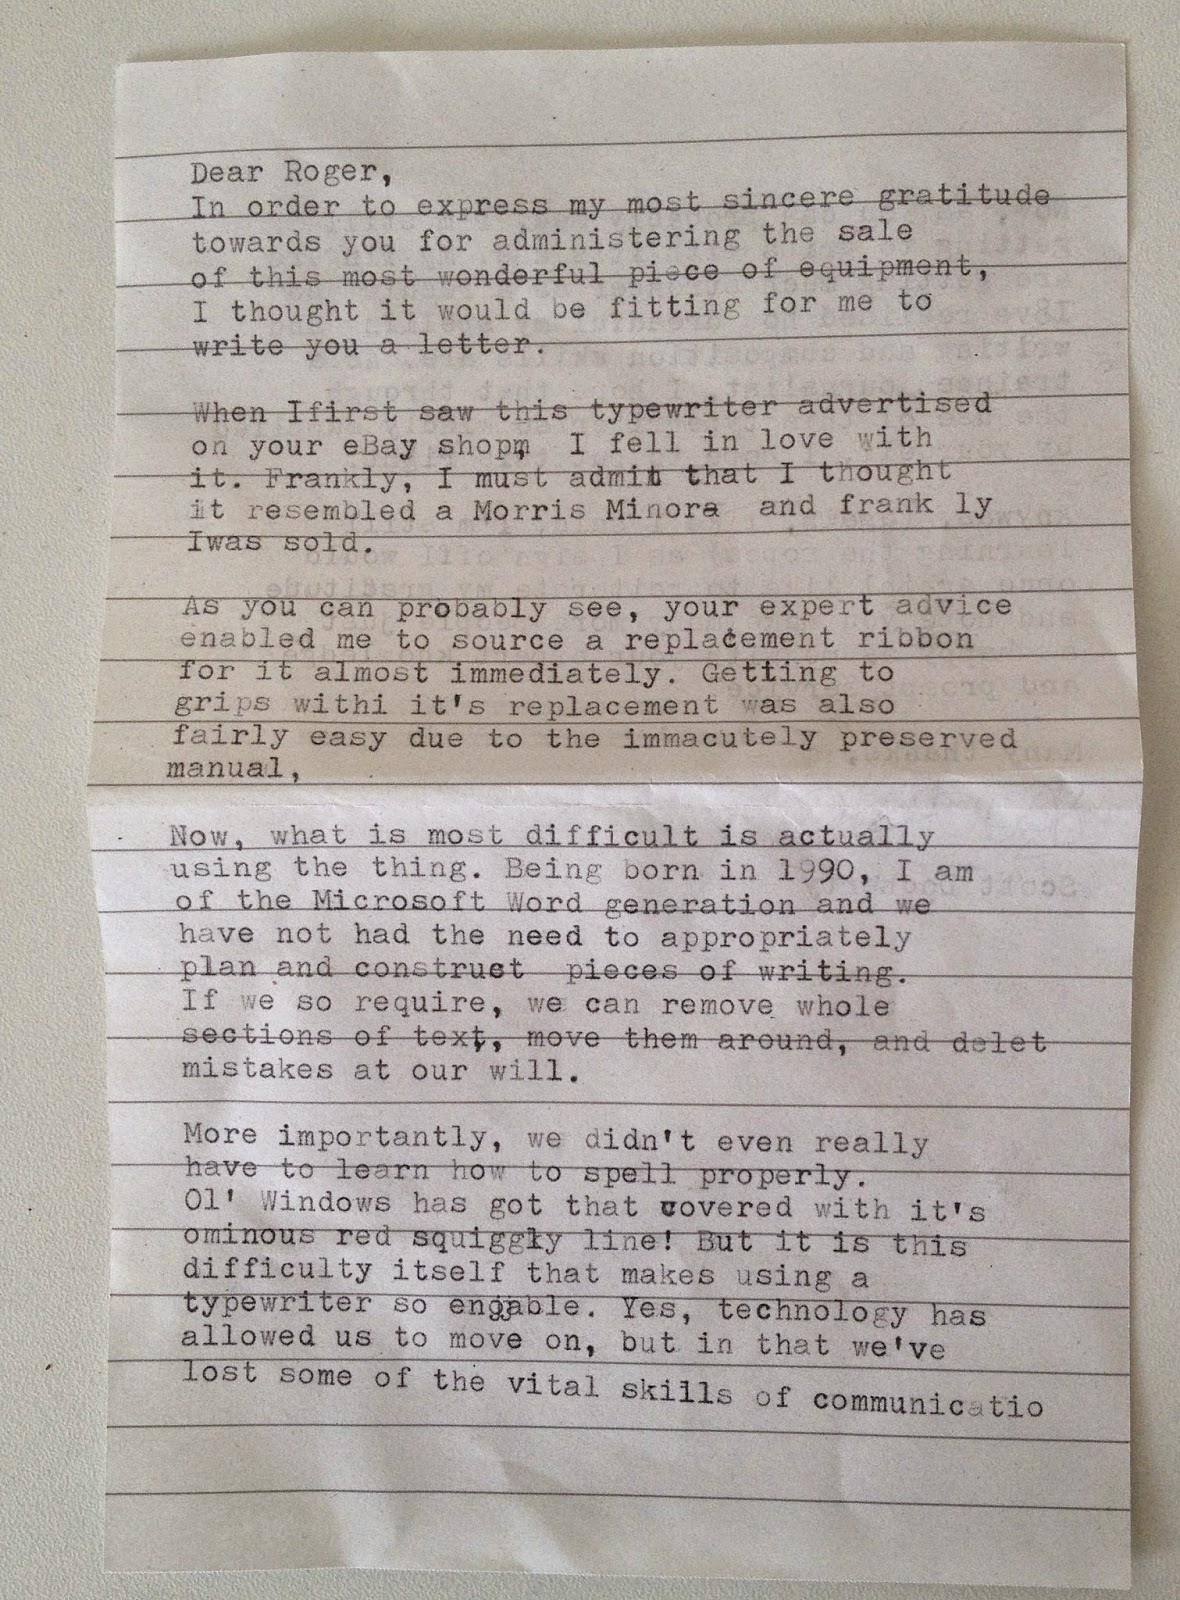 Dear Roger,
In order to express my most sincere gratitude
towards you for administering the sale
of this most wonderful piece of equipment,
I thought it would be fitting for me to
write you a letter.
When Ifirst saw this typewriter advertised
on your eBay shop, I fell in love with
it. Frankly, I must admit that I thought
it resembled a Morris Minora and frank ly
Iwas sold.
As you can probably see, your expert advice
enabled me to source a replacement ribbon
for it almost immediately. Getting to
grips withi it's replacement was also
fairly easy due to the immacutely preserved
manual,
Now, what is most difficult is actually
using the thing. Being born in 1990, I am
of the Microsoft Word generation and we
have not had the need to appropriately
plan and construct pieces of writing.
If we so require, we can remove whole
sections of text, move them around, and delet
mistakes at our will.
More importantly, we didn't even really
have to learn how to spell properly.
Ol' Windows has got that covered with it's
ominous red squiggly line! But it is this
difficulty itself that makes using a
typewriter so Yes, technology has
allowed us to move on, but in that we've
lost some of the vital skills of communicatio